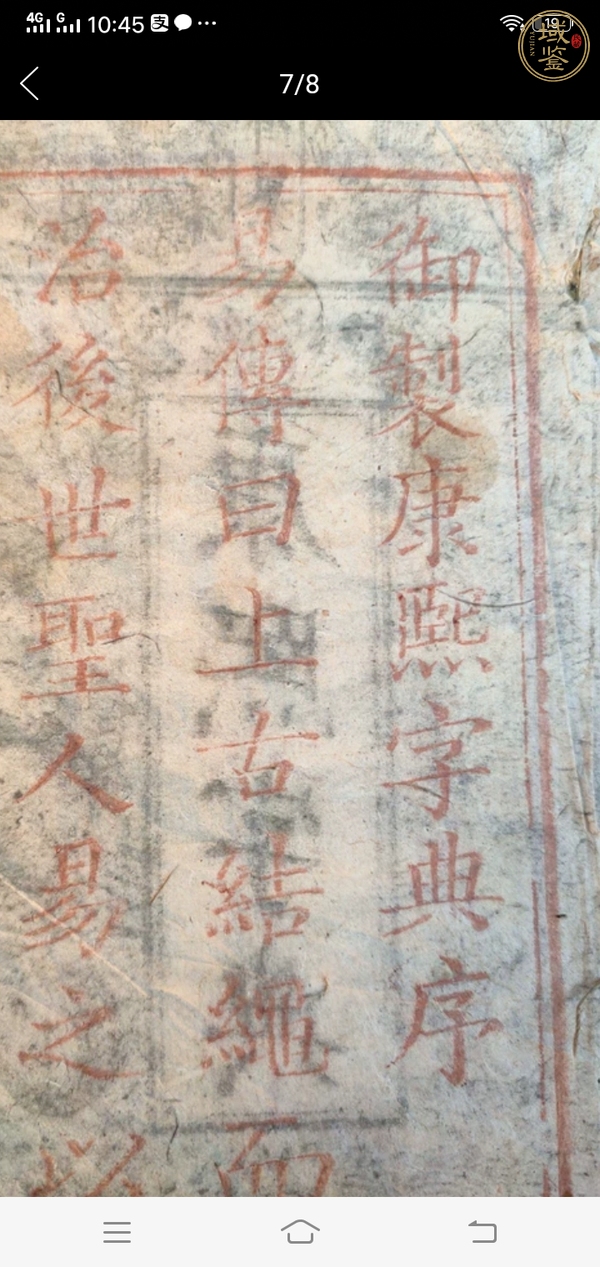 4G G 10:45 支 19
域鉴
7/8
御製康熙字典序
易傳曰上古結繩而
治後世聖人易之以